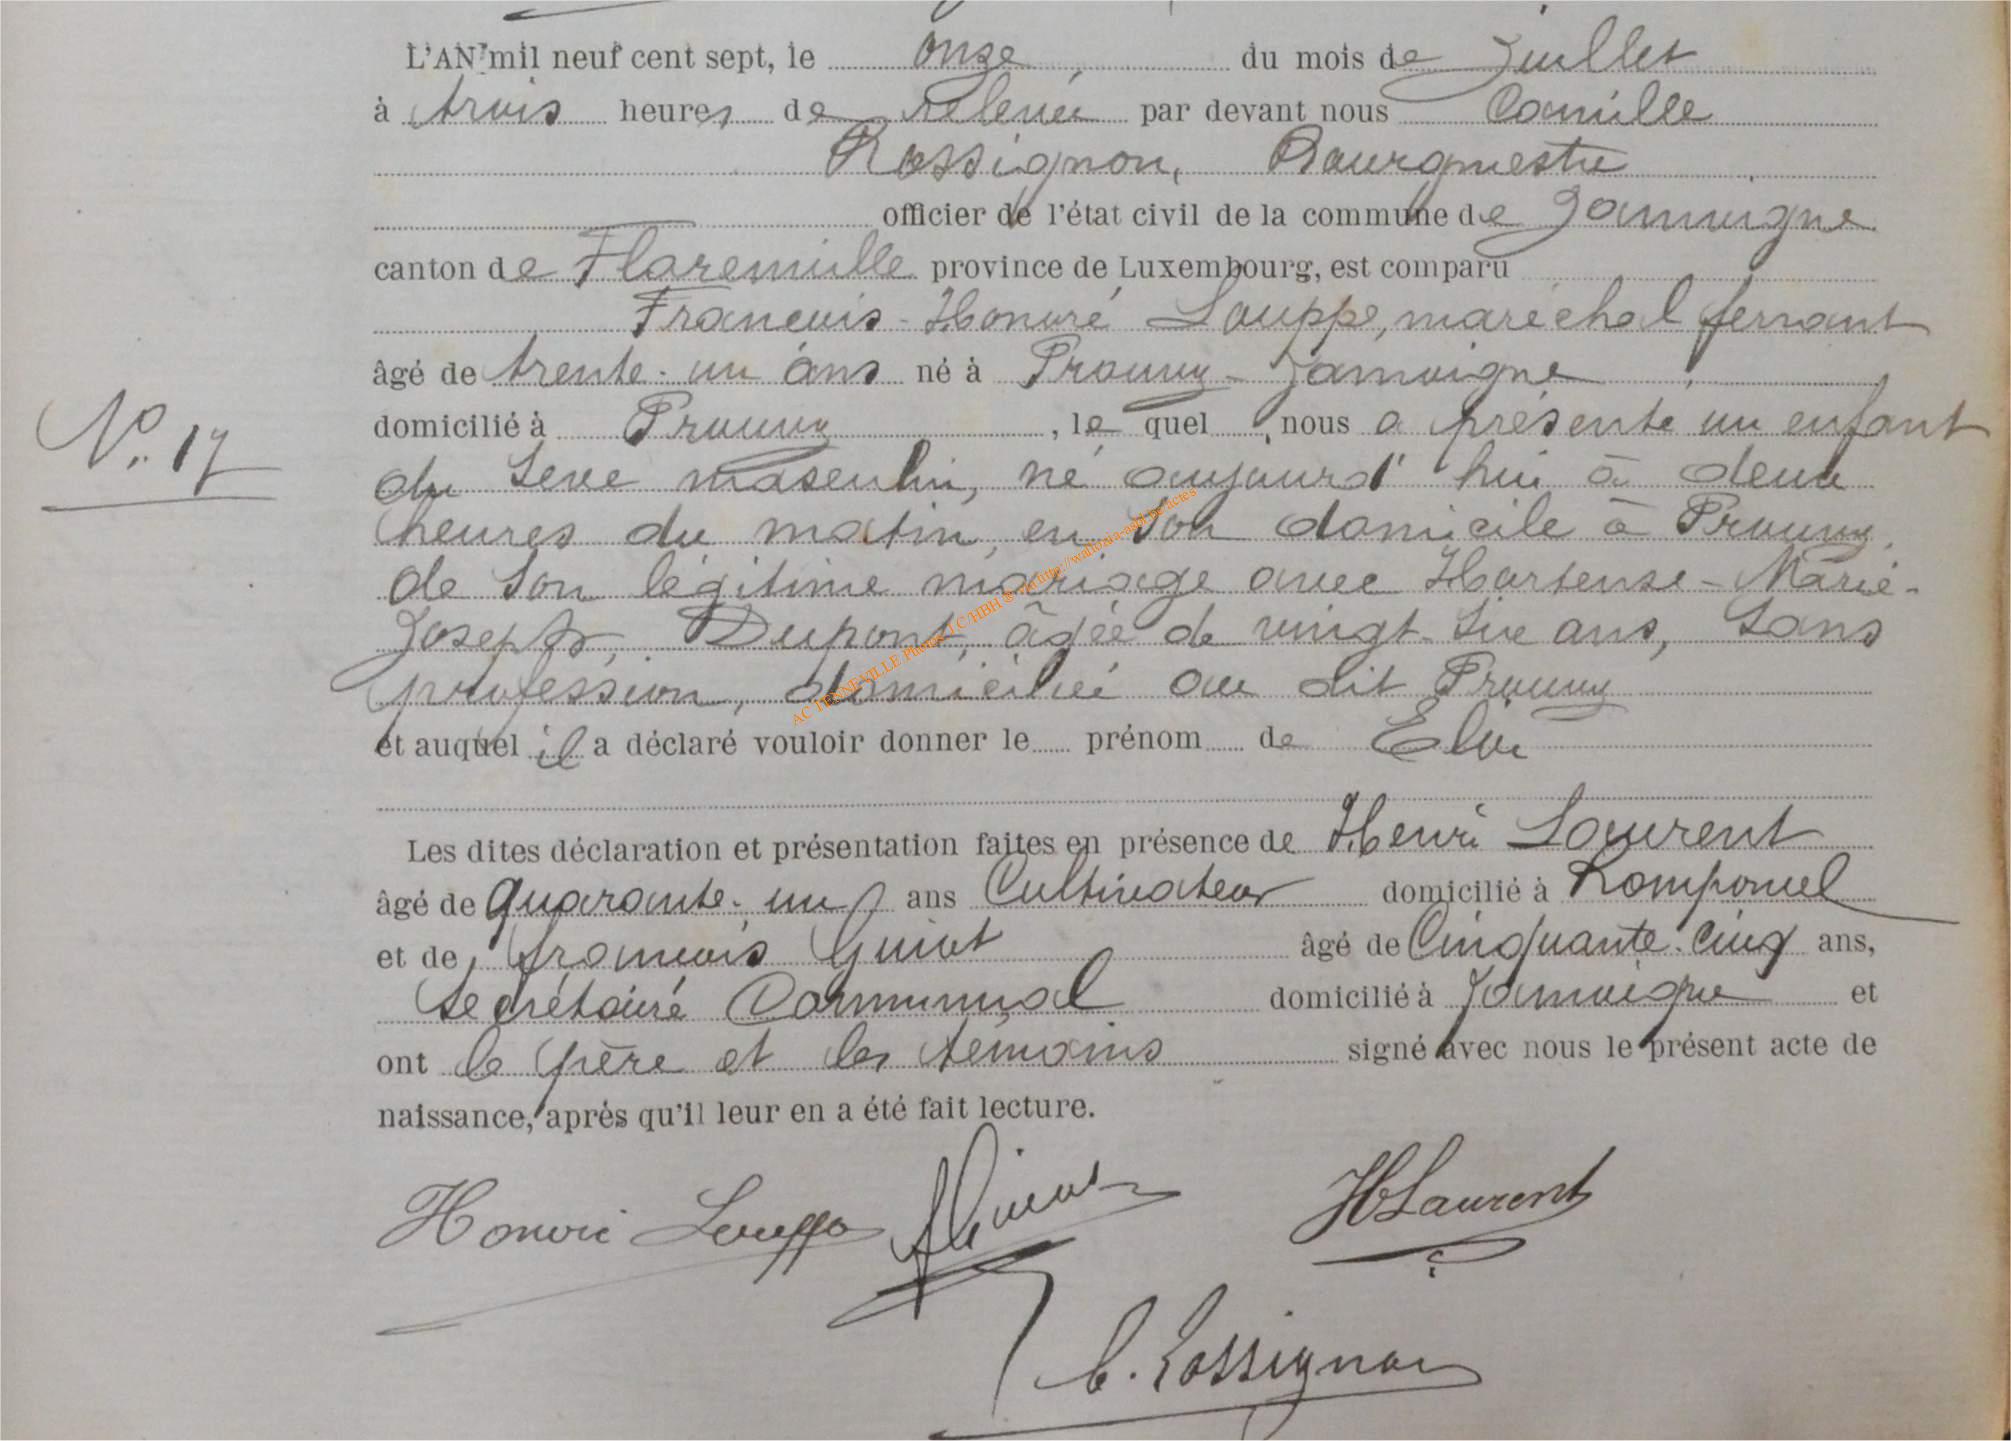 L'AN mil neuf cent sept, le onze du mois de Juillet
à trois heures de relevée par devant nous Camille
Rossignon, Bourgmestre
officier de l'état civil de la commune de Jamoigne
canton de Florenville province de Luxembourg, est comparu
François-Honoré Louppe, maréchal ferrant
âgé de trente-un ans né à Prouvy-Jamoigne
domicilié à Prouvy, le quel nous a présenté un enfant
N° 17
du sexe masculin, né aujourd'hui à deux
heures du matin, en son domicile à Prouvy,
de son légitime mariage avec Hortense-Marie-
Joseph, Dupont, âgée de vingt-six ans, sans
profession, domiciliée au dit Prouvy
et auquel il a déclaré vouloir donner le prénom de Eloi
Les dites déclaration et présentation faites en présence de Henri Laurent
âgé de quarante-un ans Cultivateur domicilié à Romponcel
et de françois Guiot âgé de Cinquante-cinq ans,
secrétaire Communal domicilié à Jamoigne et
ont le père et les témoins signé avec nous le présent acte de
naissance, après qu'il leur en a été fait lecture.
Honoré Louppe
HLaurent
C. Rossignon
AC TENNEVILLE Photos JC/HBH © http://wallonia-asbl.be/actes